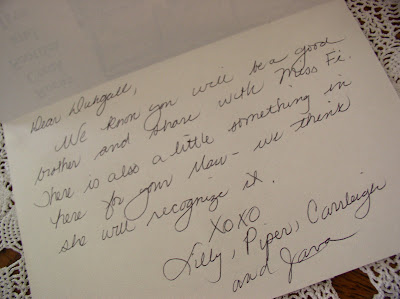 Dear Duhgall,
We know you will be a good
brother and share with Miss Fi.
There is also a little something in
here for your Maw - we think
she will recognize it.
XOXO
Lilly, Piper, Carrleigh
and Java